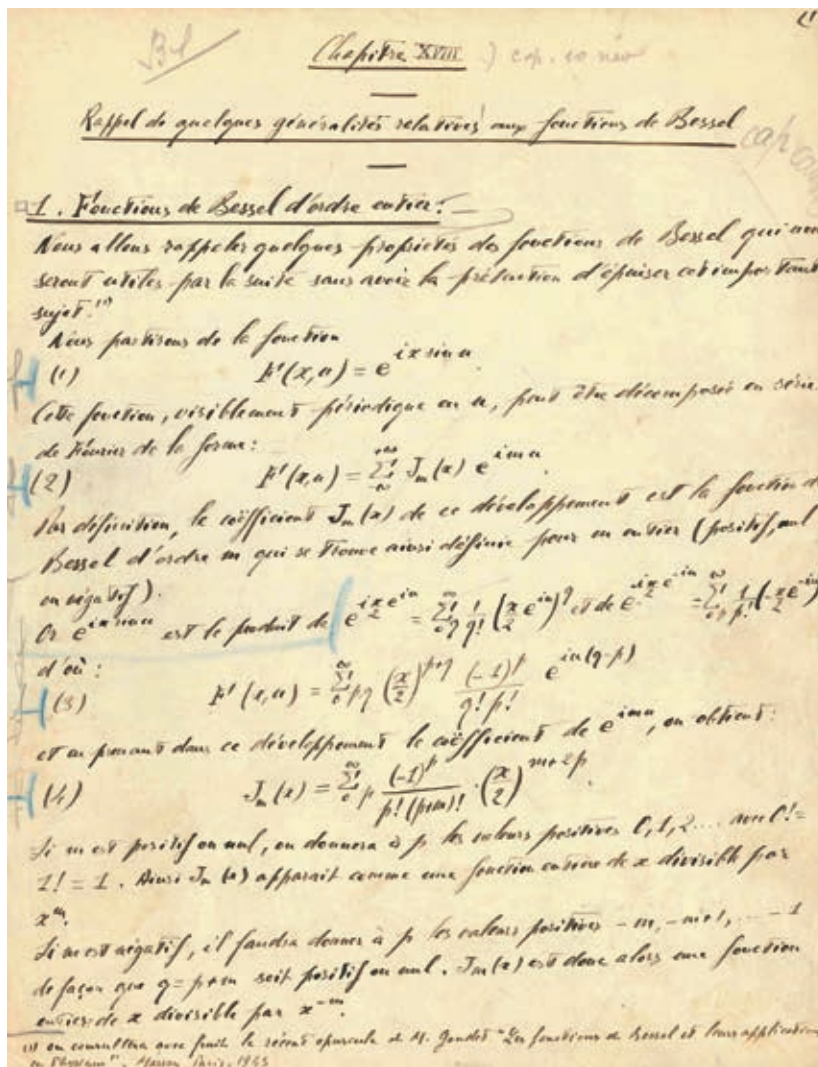 Chapitre XVIII ) cap. 10 nev
Rappel de quelques généralités relatives aux fonctions de Bessel
1. Fonctions de Bessel d'ordre entier:
Nous allons rappeler quelques propriétés des fonctions de Bessel qui
seront utiles par la suite sans avoir la prétention d'épuiser cet important
sujet.(1)
Nous partirons de la fonction
(1) F(x,u) = e^{ix sin u}
Cette fonction, visiblement périodique en u, peut être décomposée en série
de Fourier de la forme:
(2) F(x,u) = \sum_{-\infty}^{+\infty} J_m(x) e^{imu}
Par définition, le coëfficient J_m(x) de ce développement est la fonction d
Bessel d'ordre m qui se trouve ainsi définie pour m entier (positif, nul
ou négatif).
Or e^{ix sin u} est le produit de e^{i\frac{x}{2}e^{iu}} = \sum_0^\infty q \frac{1}{q!} (\frac{x}{2} e^{iu})^q et de e^{-\frac{x}{2}e^{-iu}} = \sum_0^\infty p \frac{1}{p!} (-\frac{x}{2} e^{-iu})
d'où:
(3) F(x,u) = \sum_0^\infty pq (\frac{x}{2})^{p+q} \frac{(-1)^p}{q! p!} e^{iu(q-p)}
et en prenant dans ce développement le coëfficient de e^{imu}, on obtient:
(4) J_m(x) = \sum_0^\infty p \frac{(-1)^p}{p!(p+m)!} \cdot (\frac{x}{2})^{m+2p}
Si m est positif ou nul, on donnera à p les valeurs positives 0, 1, 2.... avec 0! =
1! = 1. Ainsi J_m(x) apparait comme une fonction entière de x divisible par
x^m.
Si m est négatif, il faudra donner à p les valeurs positives -m, -m+1, .... - 1
de façon que q = p+m soit positif ou nul. J_m(x) est donc alors une fonction
entière de x divisible par x^{-m}.
(1) on consultera avec fruit le récent opuscule de M. Goudet "Les fonctions de Bessel et leurs application
en Physique". Masson Paris, 1943